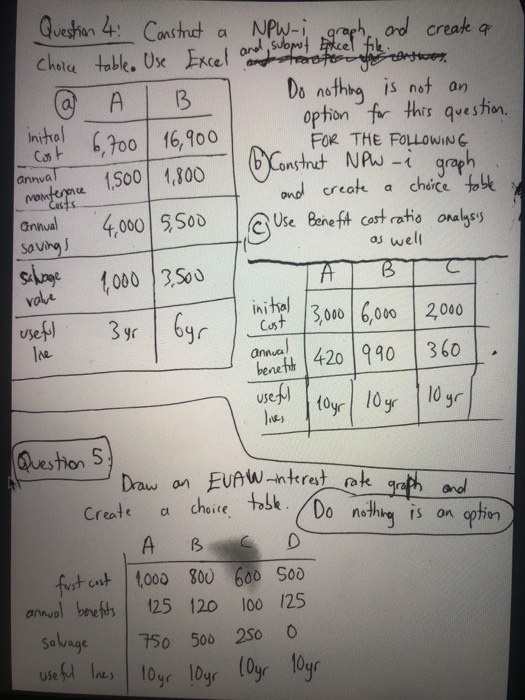 Question 4: Construct a NPW-i graph and create a
choice table. Use Excel and submit Excel file.
Do nothing is not an
option for this question.
(a) A B
initial cost 6,700 16,900
annual maintenance costs 1,500 1,800
annual savings 4,000 5,500
salvage value 1,000 3,500
useful line 3 yr 6yr
FOR THE FOLLOWING
(b) Construct NPW -i graph
and create a choice table
(c) Use Benefit cost ratio analysis
as well
A B C
initial cost 3,000 6,000 2,000
annual benefits 420 990 360
useful lives 10yr 10 yr 10 yr
Question 5:
Draw an EUAW-interest rate graph and
Create a choice table. Do nothing is an option
A B C D
first cost 1,000 800 600 500
annual benefits 125 120 100 125
Salvage 750 500 250 0
useful lives 10yr 10yr 10yr 10yr